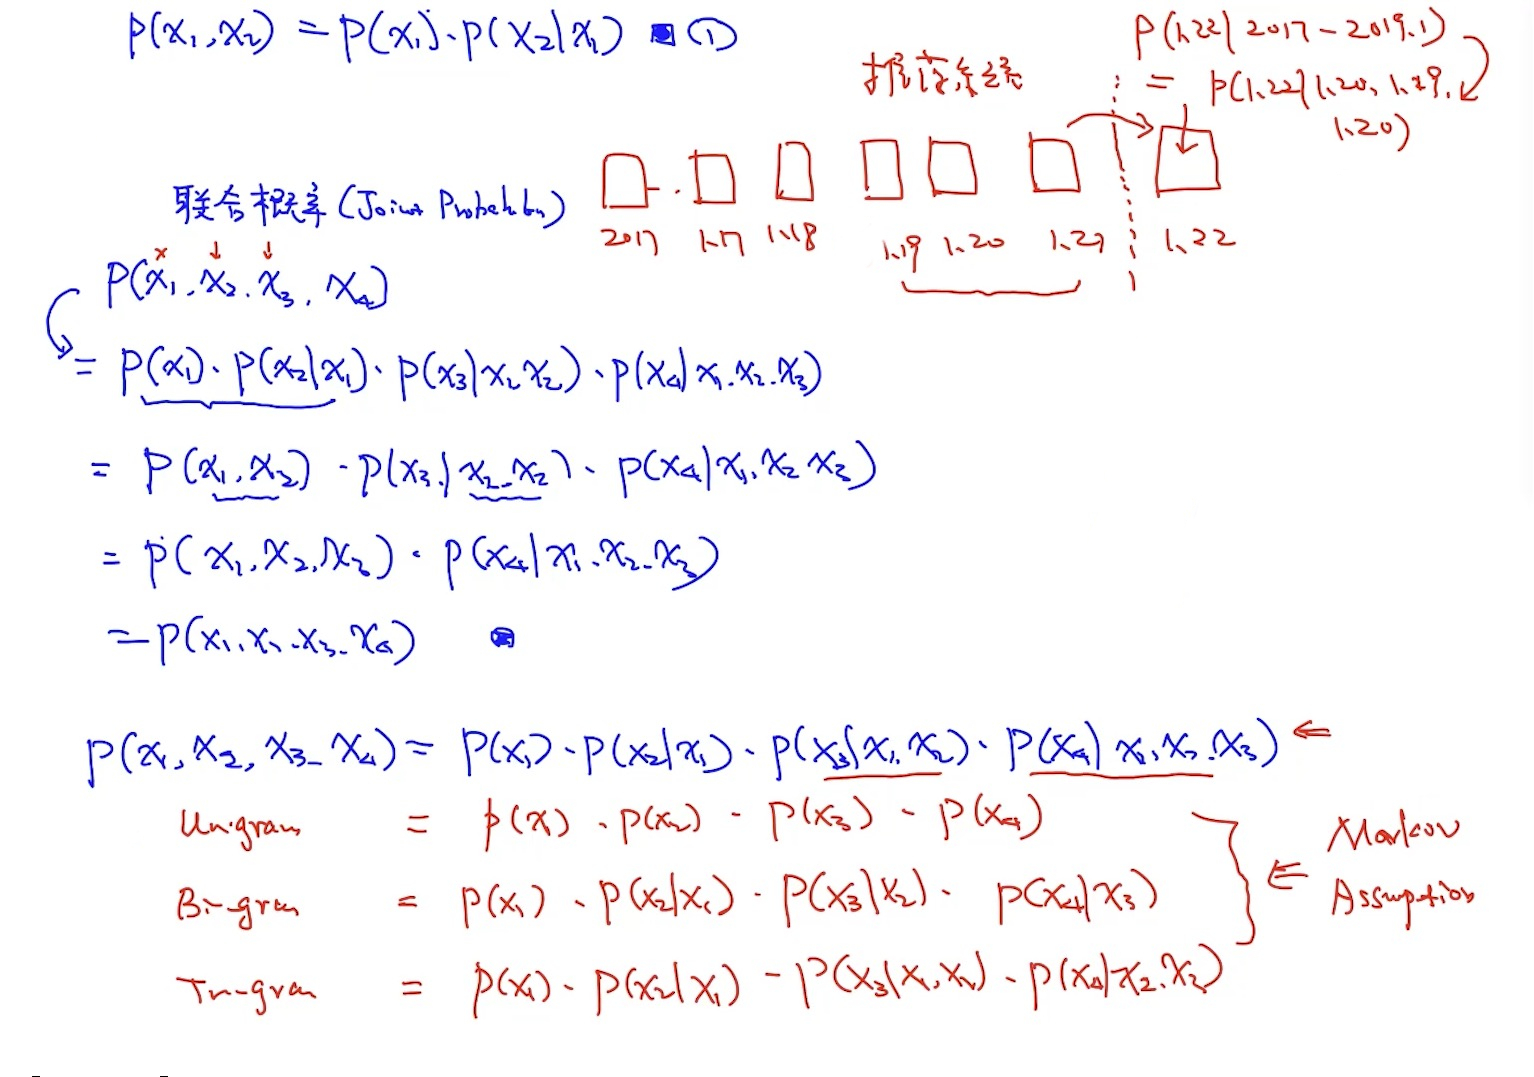 P(x₁,x₂) = P(x₁)·P(x₂|x₁) ①
P(1.22|2017-2019.1)
= P(1.22|1.20, 1.19,
1.20)
推荐系统
2017 1.17 1.18 1.19 1.20 1.21 1.22
联合概率 (Joint Probability)
P(x₁, x₂, x₃, x₄)
= P(x₁)·P(x₂|x₁)·P(x₃|x₂ x₂)·P(x₄|x₁.x₂.x₃)
= P(x₁,x₂)·P(x₃|x₂.x₂)·P(x₄|x₁, x₂ x₃)
= P(x₁,x₂,x₃)·P(x₄|x₁.x₂.x₃)
= P(x₁.x₂.x₃.x₄)
P(x₁,x₂,x₃.x₄) = P(x₁)·P(x₂|x₁)·P(x₃|x₁,x₂)·P(x₄|x₁,x₂.x₃) ⇐
Uni-gram = P(x₁)·P(x₂)·P(x₃)·P(x₄)
Bi-gram = P(x₁)·P(x₂|x₁)·P(x₃|x₂)·P(x₄|x₃)
Tri-gram = P(x₁)·P(x₂|x₁)·P(x₃|x₁,x₂)·P(x₄|x₂.x₃)
⇐ Markov
Assumption